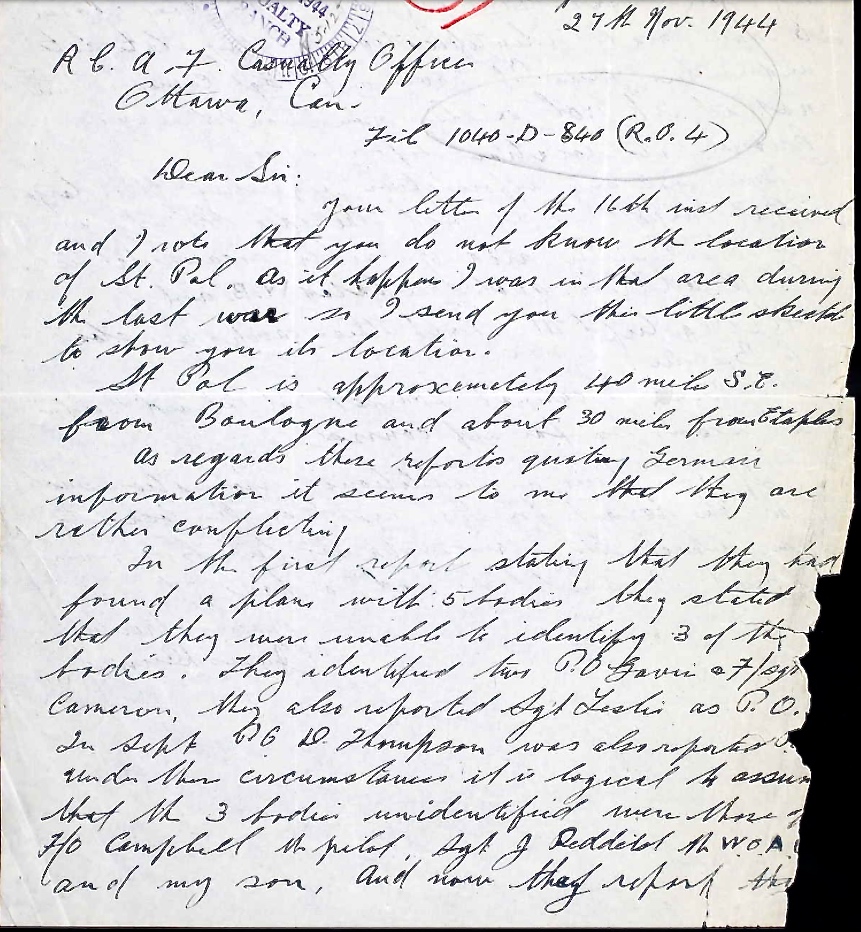 1944
ALTY
ANCH
27th Nov. 1944
R C. A. F. Casualty Officer
Ottawa, Can.
File 1040-D-840 (R.O. 4)
Dear Sir:
Your letter of the 16th inst received
and I note that you do not know the location
of St. Pol. as it happens I was in that area during
the last war so I send you this little sketch
to show you its location.
St Pol is approximately 40 miles S.E.
from Boulogne and about 30 miles from Etaples
As regards these reports quoting German
information it seems to me that they are
rather conflicting
In the first report stating that they had
found a plane with 5 bodies they stated
that they were unable to identify 3 of the
bodies. They identified two P.O Gavin & F/sgt
Cameron, they also reported Sgt Leslie as P. O.
In Sept P.O D. Thompson was also reported
under these circumstances it is logical to assum
that the 3 bodies unidentified were those
F/O Campbell the pilot, Sgt J the W.O.A
and my son, and now they report